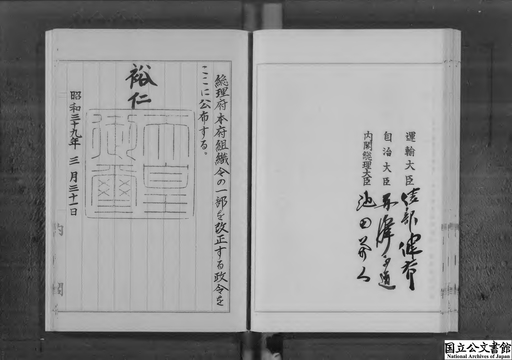 運輸大臣 綾部健太郎
自治大臣 赤澤正道
内閣総理大臣 池田勇人
総理府本府組織令の一部を改正する政令を
ここに公布する。
裕仁
天皇
御璽
昭和三十九年 三月三十一日
国立公文書館
National Archives of Japan